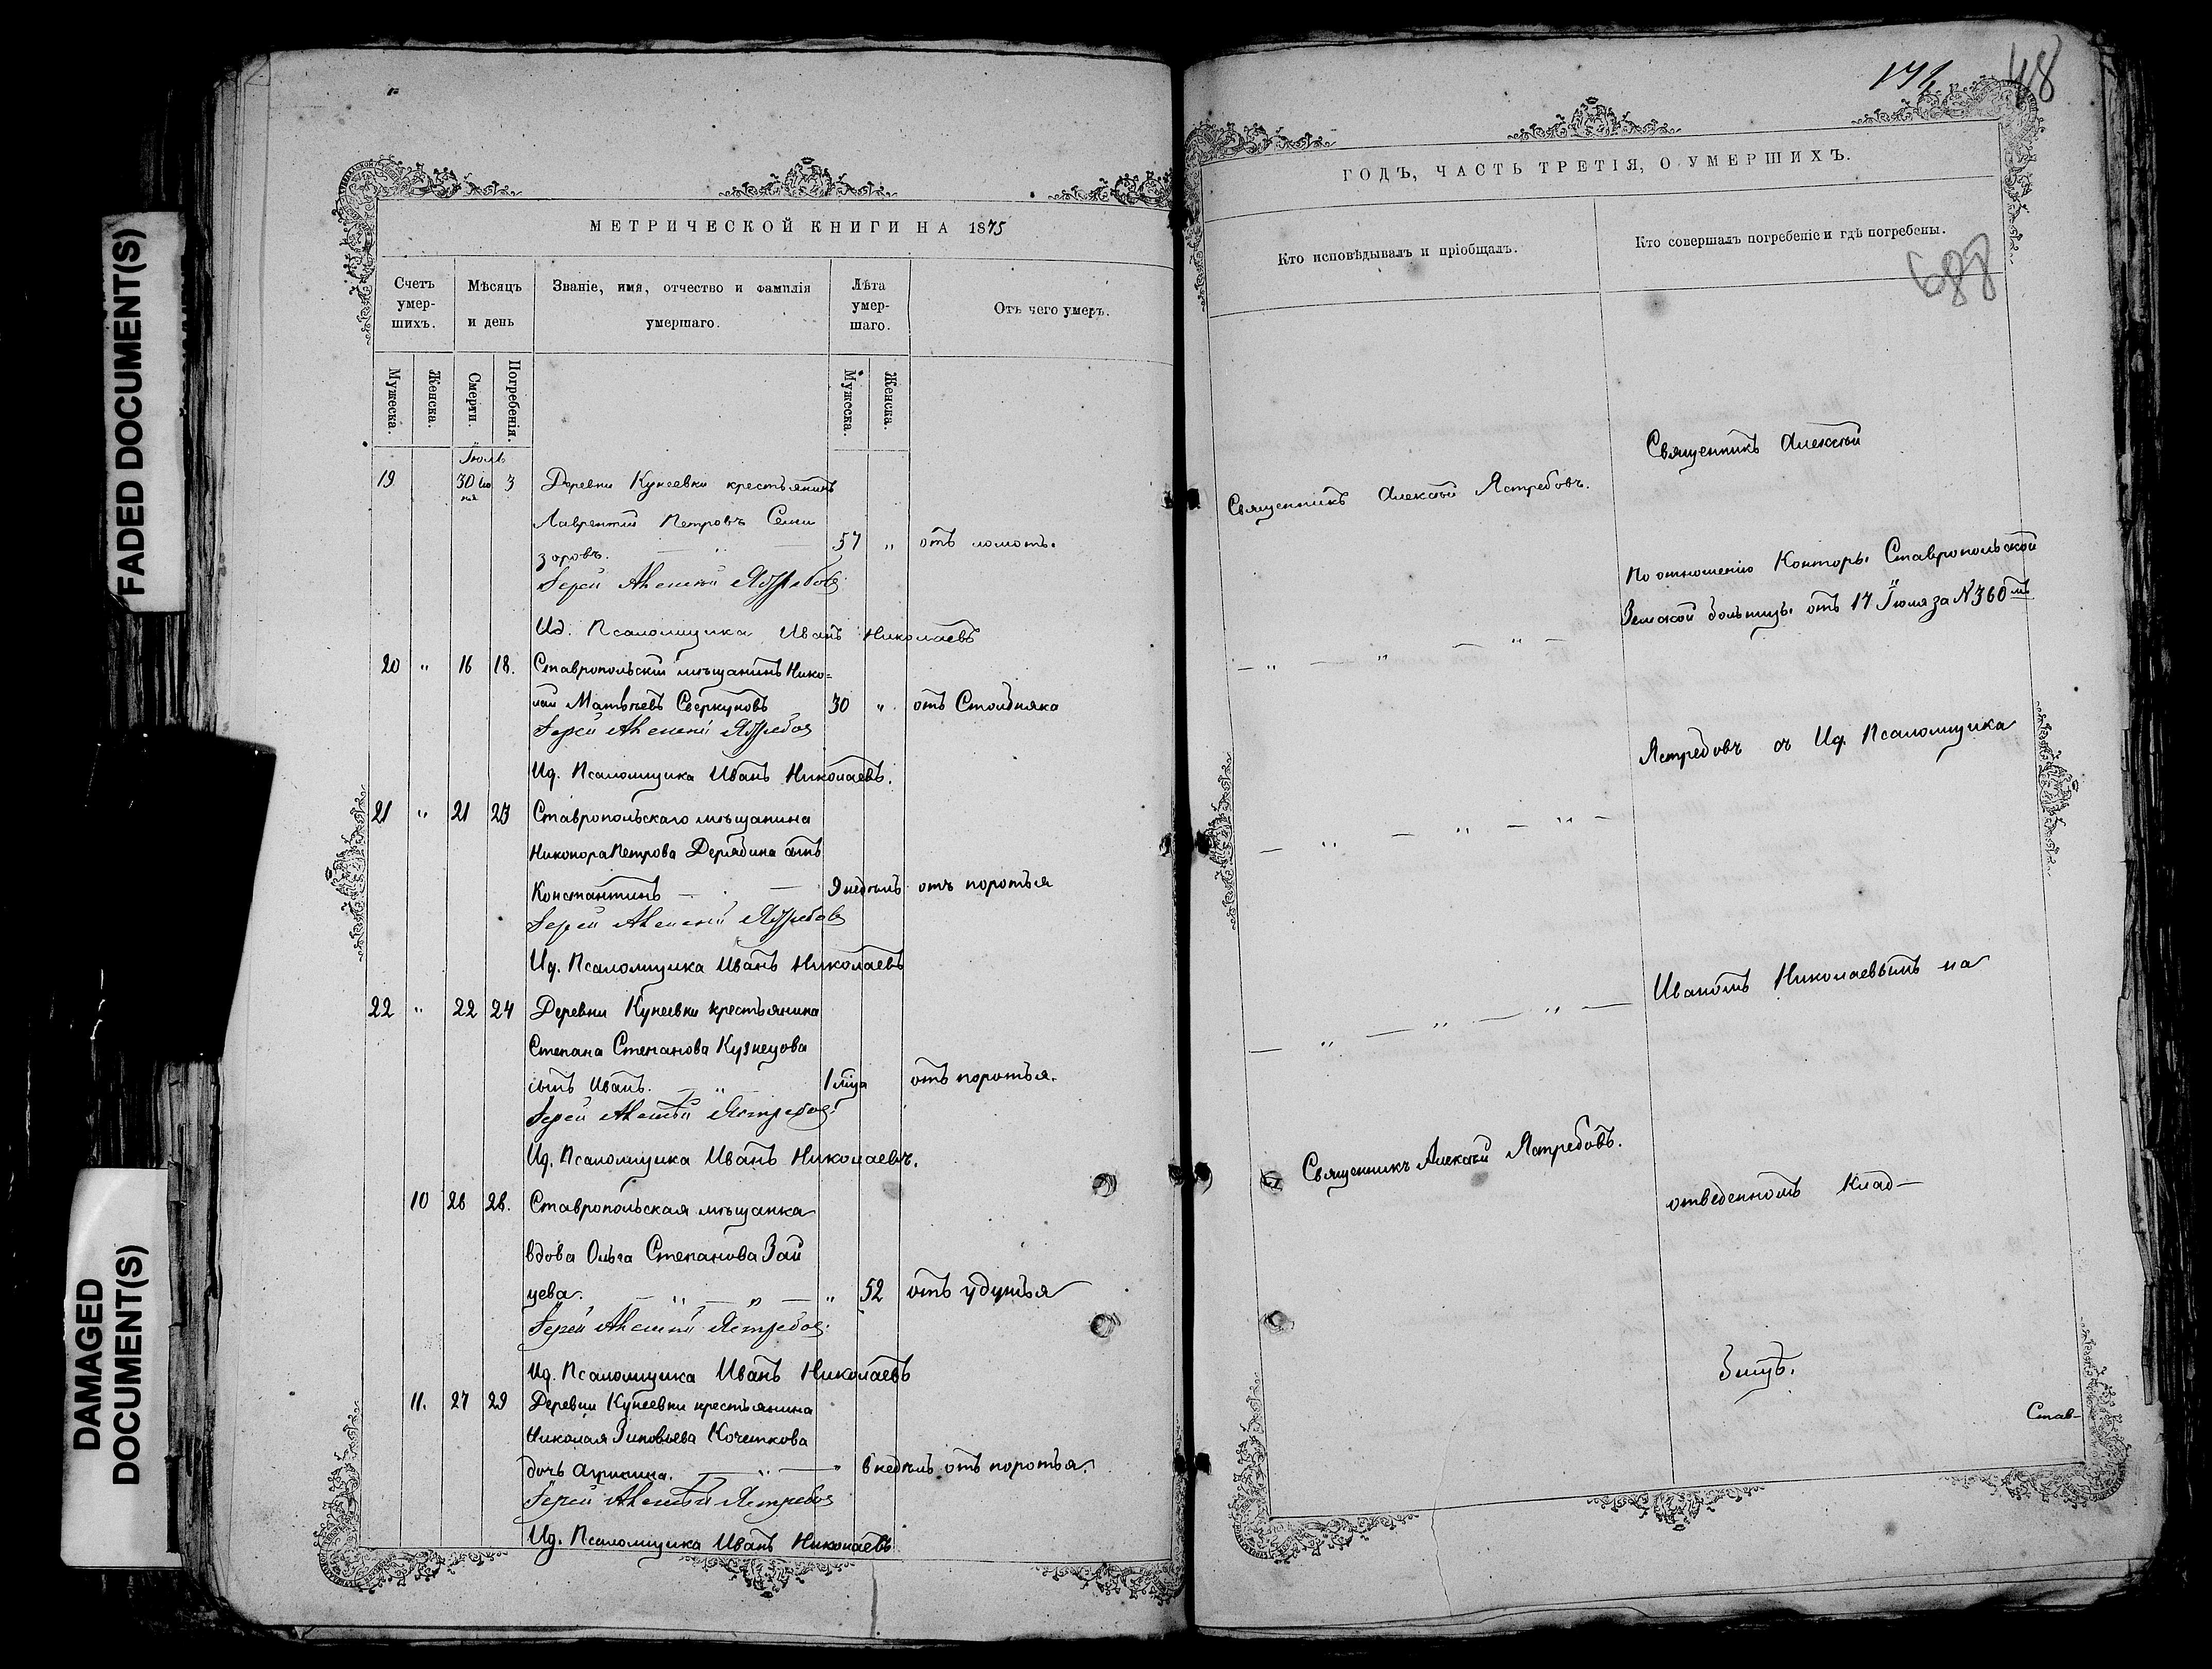 FADED DOCUMENT(S)
DAMAGED
DOCUMENT(S)
МЕТРИЧЕСКОЙ КНИГИ НА 1875
Счетъ умер-шихъ.
Мѣсяцъ и день
Званіе, имя, отчество и фамилія умершаго.
Лѣта умер-шаго.
Отъ чего умеръ.
Мужеска.
Женска.
Смерти.
Погребенія.
Мужеска.
Женска.
Іюль
19 30 Іюня 3 Деревни Кунеевки крестьянинъ
Лаврентій Петровъ Сени
зоровъ. — „ — 57 „ отъ ломоты.
Іерей Алексѣй Ястребовъ
Ид. Псаломщика Иванъ Николаевъ
20 „ 16 18. Ставропольскій мѣщанинъ Нико=
лай Матвѣевъ Сверкуновъ 30 „ отъ Столбняка
Іерей Алексѣй Ястребовъ
Ид. Псаломщика Иванъ Николаевъ.
21 „ 21 23 Ставропольскаго мѣщанина
Никонора Петрова Дерябина сынъ
Константинъ — 9 недѣль отъ поротья
Іерей Алексѣй Ястребовъ
Ид. Псаломщика Иванъ Николаевъ
22 „ 22 24 Деревни Кунеевки крестьянина
Степана Степанова Кузнецова
сынъ Иванъ. — „ 1 мца отъ поротья.
Іерей Алексѣй Ястребовъ
Ид. Псаломщика Иванъ Николаевъ.
10 26 28. Ставропольская мѣщанка
вдова Ольга Степанова Зай
цева. — „ — „ — „ 52 отъ удушья
Іерей Алексѣй Ястребовъ
Ид. Псаломщика Иванъ Николаевъ
11. 27 29 Деревни Кунеевки крестьянина
Николая Зиновьева Кочеткова
дочь Агрипина. — „ — 6 недѣль отъ поротья.
Іерей Алексѣй Ястребовъ
Ид. Псаломщика Иванъ Николаевъ
48
ГОДЪ, ЧАСТЬ ТРЕТІЯ, О УМЕРШИХЪ.
Кто исповѣдывалъ и пріобщалъ.
Кто совершалъ погребеніе и гдѣ погребены.
688
Священникъ Алексѣй
Священникъ Алексѣй Ястребовъ.
По отношенію Конторы Ставропольской
Земской больницы отъ 17 Іюля за № 360мъ
— „ — „ — „ —
Ястребовъ съ Ид. Псаломщика
— „ — „ — „ —
Иваномъ Николаевымъ на
— „ — „ — „ —
Священникъ Алексѣй Ястребовъ.
отведенномъ Клад—
бищѣ.
Став-